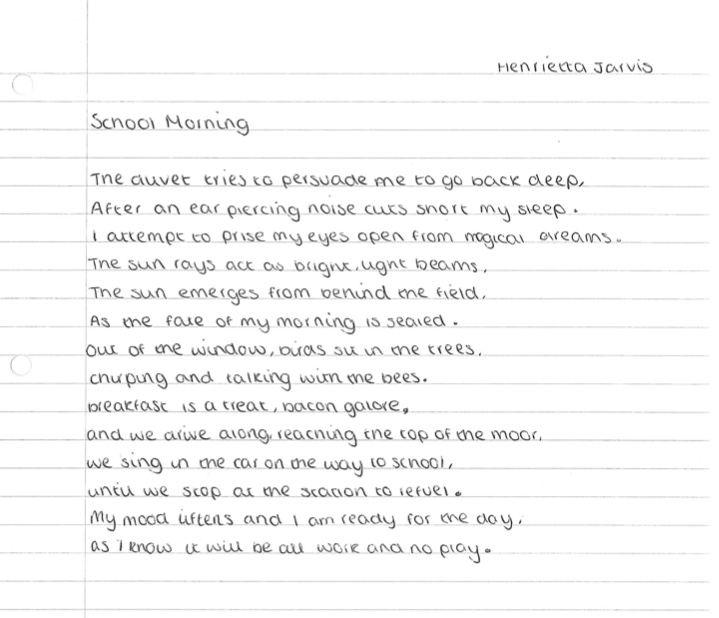 Henrietta Jarvis
School Morning
The duvet tries to persuade me to go back deep,
After an ear piercing noise cuts short my sleep.
I attempt to prise my eyes open from magical dreams.
The sun rays act as bright, light beams,
The sun emerges from behind the field,
As the fate of my morning is sealed.
Out of the window, birds sit in the trees,
chirping and talking with the bees.
breakfast is a treat, bacon galore,
and we drive along, reaching the top of the moor,
we sing in the car on the way to school,
until we stop at the station to refuel.
My mood liftens and I am ready for the day,
as I know it will be all work and no play.